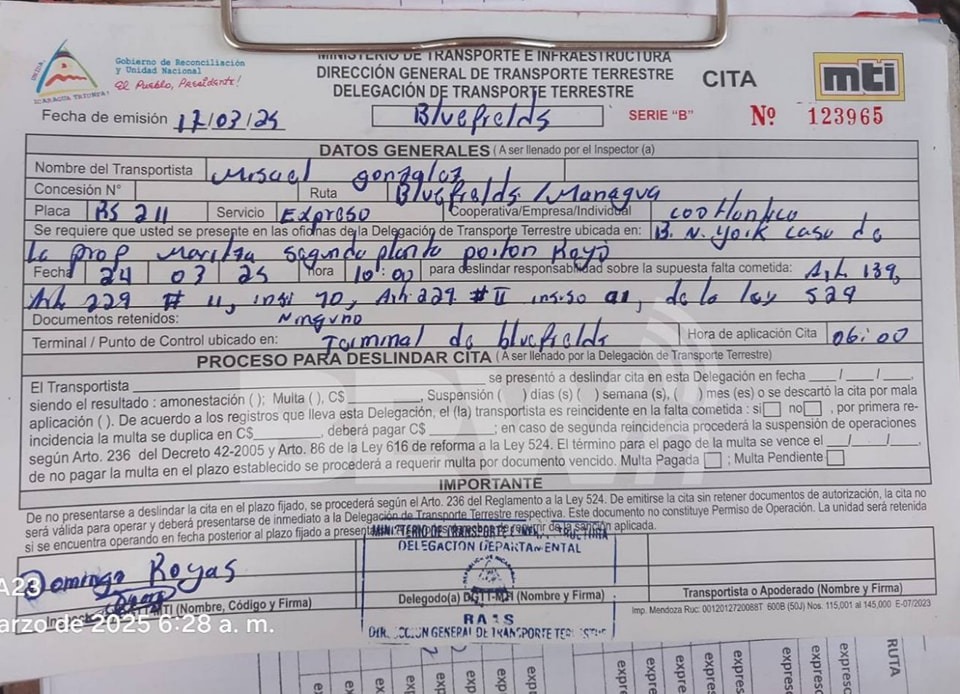 UNIDA,
NICARAGUA TRIUNFA!
Gobierno de Reconciliación
y Unidad Nacional
El Pueblo, Presidente!
MINISTERIO DE TRANSPORTE E INFRAESTRUCTURA
DIRECCIÓN GENERAL DE TRANSPORTE TERRESTRE
DELEGACIÓN DE TRANSPORTE TERRESTRE
CITA
mti
Fecha de emisión 17/03/25
Bluefields
SERIE "B"
Nº 123965
DATOS GENERALES (A ser llenado por el Inspector (a)
Nombre del Transportista Misael gonzalez
Concesión N° Ruta Bluefields/Managua
Placa RS 211 Servicio Expreso Cooperativa/Empresa/Individual cootlantico
Se requiere que usted se presente en las oficinas de la Delegación de Transporte Terrestre ubicada en: B. N. York casa de
la prop Maritza segunda planta porton Rojo
Fecha 24 03 25 Hora 10:00 para deslindar responsabilidad sobre la supuesta falta cometida: Art 139,
Art 229 # 11, insi 10, Art. 229 # II insiso 91, de la ley 524
Documentos retenidos: Ninguno
Terminal / Punto de Control ubicado en: Terminal de bluefields Hora de aplicación Cita 06:00
PROCESO PARA DESLINDAR CITA (A ser llenado por la Delegación de Transporte Terrestre)
El Transportista se presentó a deslindar cita en esta Delegación en fecha ___/___/___,
siendo el resultado : amonestación ( ); Multa ( ), C$ , Suspensión ( ) días (s) ( ) semana (s), ( ) mes (es) o se descartó la cita por mala
aplicación ( ). De acuerdo a los registros que lleva esta Delegación, el (la) transportista es reincidente en la falta cometida : si no , por primera re-
incidencia la multa se duplica en C$ , deberá pagar C$ ; en caso de segunda reincidencia procederá la suspensión de operaciones
según Arto. 236 del Decreto 42-2005 y Arto. 86 de la Ley 616 de reforma a la Ley 524. El término para el pago de la multa se vence el ___/___/___,
de no pagar la multa en el plazo establecido se procederá a requerir multa por documento vencido. Multa Pagada ; Multa Pendiente
IMPORTANTE
De no presentarse a deslindar la cita en el plazo fijado, se procederá según el Arto. 236 del Reglamento a la Ley 524. De emitirse la cita sin retener documentos de autorización, la cita no
será válida para operar y deberá presentarse de inmediato a la Delegación de Transporte Terrestre respectiva. Este documento no constituye Permiso de Operación. La unidad será retenida
si se encuentra operando en fecha posterior al plazo fijado a presentarse de la sanción aplicada.
MINISTERIO DE TRANSPORTE E INFRAESTRUCTURA
DELEGACION DEPARTAMENTAL
Domingo Rojas
DGTT-MTI (Nombre, Código y Firma)
Delegodo(a) DGTT-MTI (Nombre y Firma)
Transportista o Apoderado (Nombre y Firma)
RAAS
DIRECCION GENERAL DE TRANSPORTE TERRESTRE
Imp. Mendoza Ruc: 0012012720088T 600B (50J) Nos. 115,001 al 145,000 E-07/2023
A23
arzo de 2025 6:28 a. m.
RUTA
expres
expres
expres
expre
expre
expre
expre